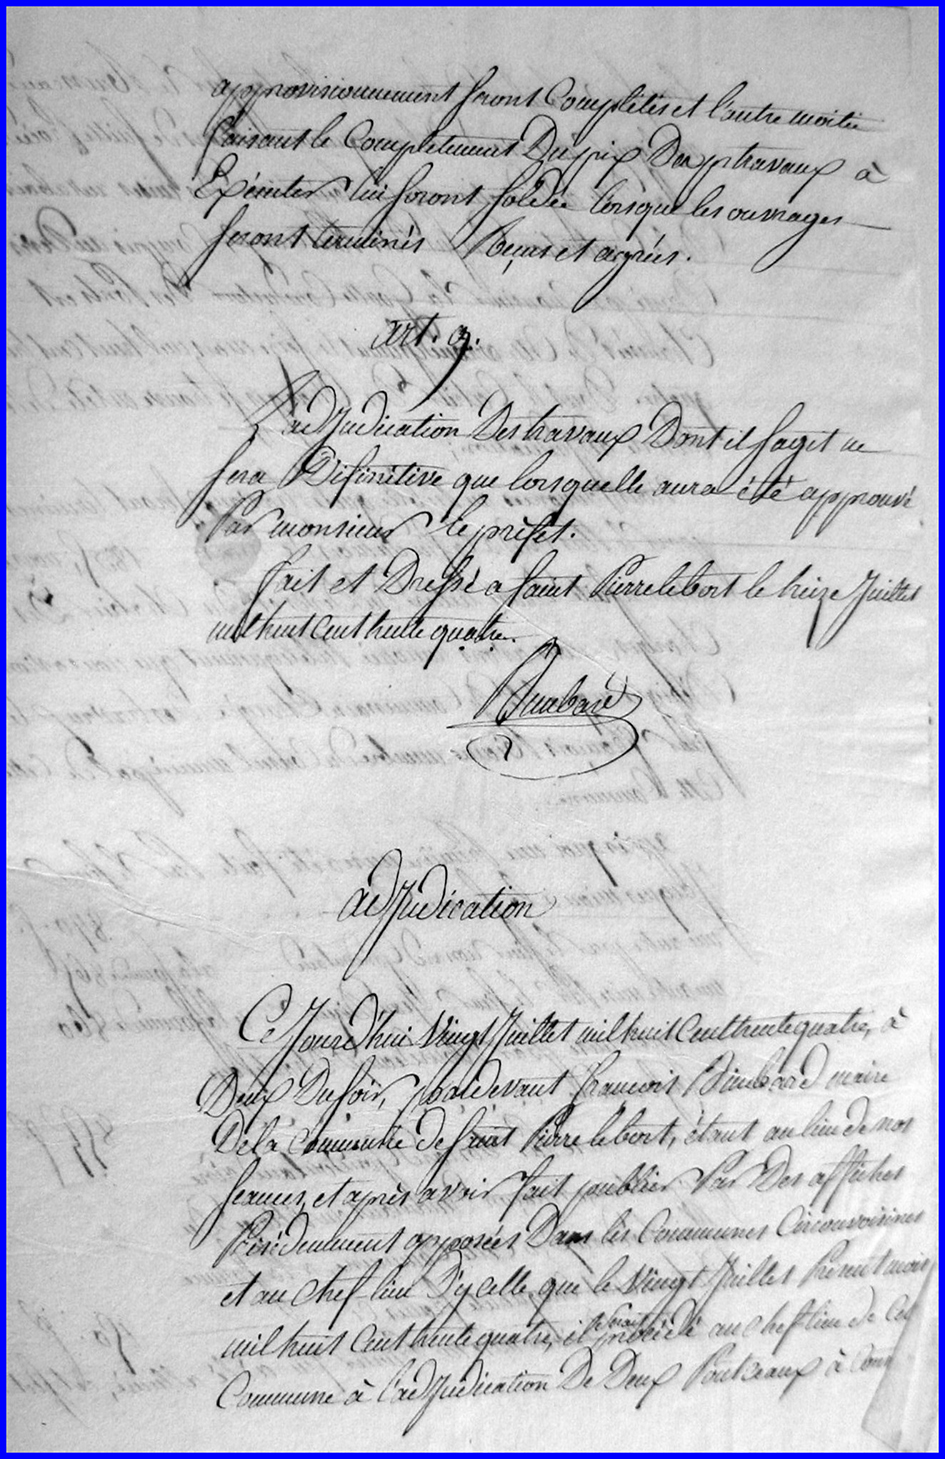 approvisionnement seront complétés et l'autre moitié
faisant le complettement Du prix Des travaux à
Exécuter lui seront soldée lorsque les ouvrages
seront terminés Reçus et agréés.
art. 9.
L'adjudication Des travaux Dont il sagit ne
sera Définitive que lorsquelle aura été approuvé
Par monsieur le préfet.
fait et Dressé a saint Pierre lebost le seize Juillet
mil huit cent trente quatre.
adjudication
Ce Jourd'hui Vingt Juillet mil huit Cent trente quatre, à
Deux Du soir, pardevant francois maire
De la commune de saint Pierre lebost, étant au lieu de nos
seances, et après avoir fait publier Par Des affiches
Précédemment apposées Dans les Communes Circonvoisines
et au chef lieu D'ycelle, que le Vingt Juillet Présent mois
mil huit Cent trente quatre, il serait procédé au chef lieu de cet
Commune à l'adjudication De Deux Ponteaux à